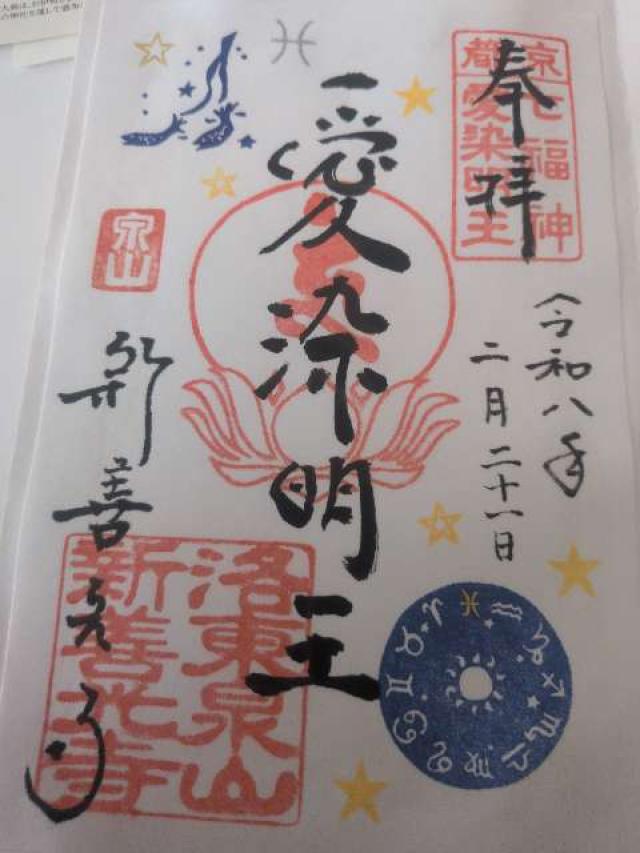 奉拝
京都
七福神
愛染明王
令和八年
二月二十一日
愛染明王
泉山
新善光寺
洛東泉山
新善光寺